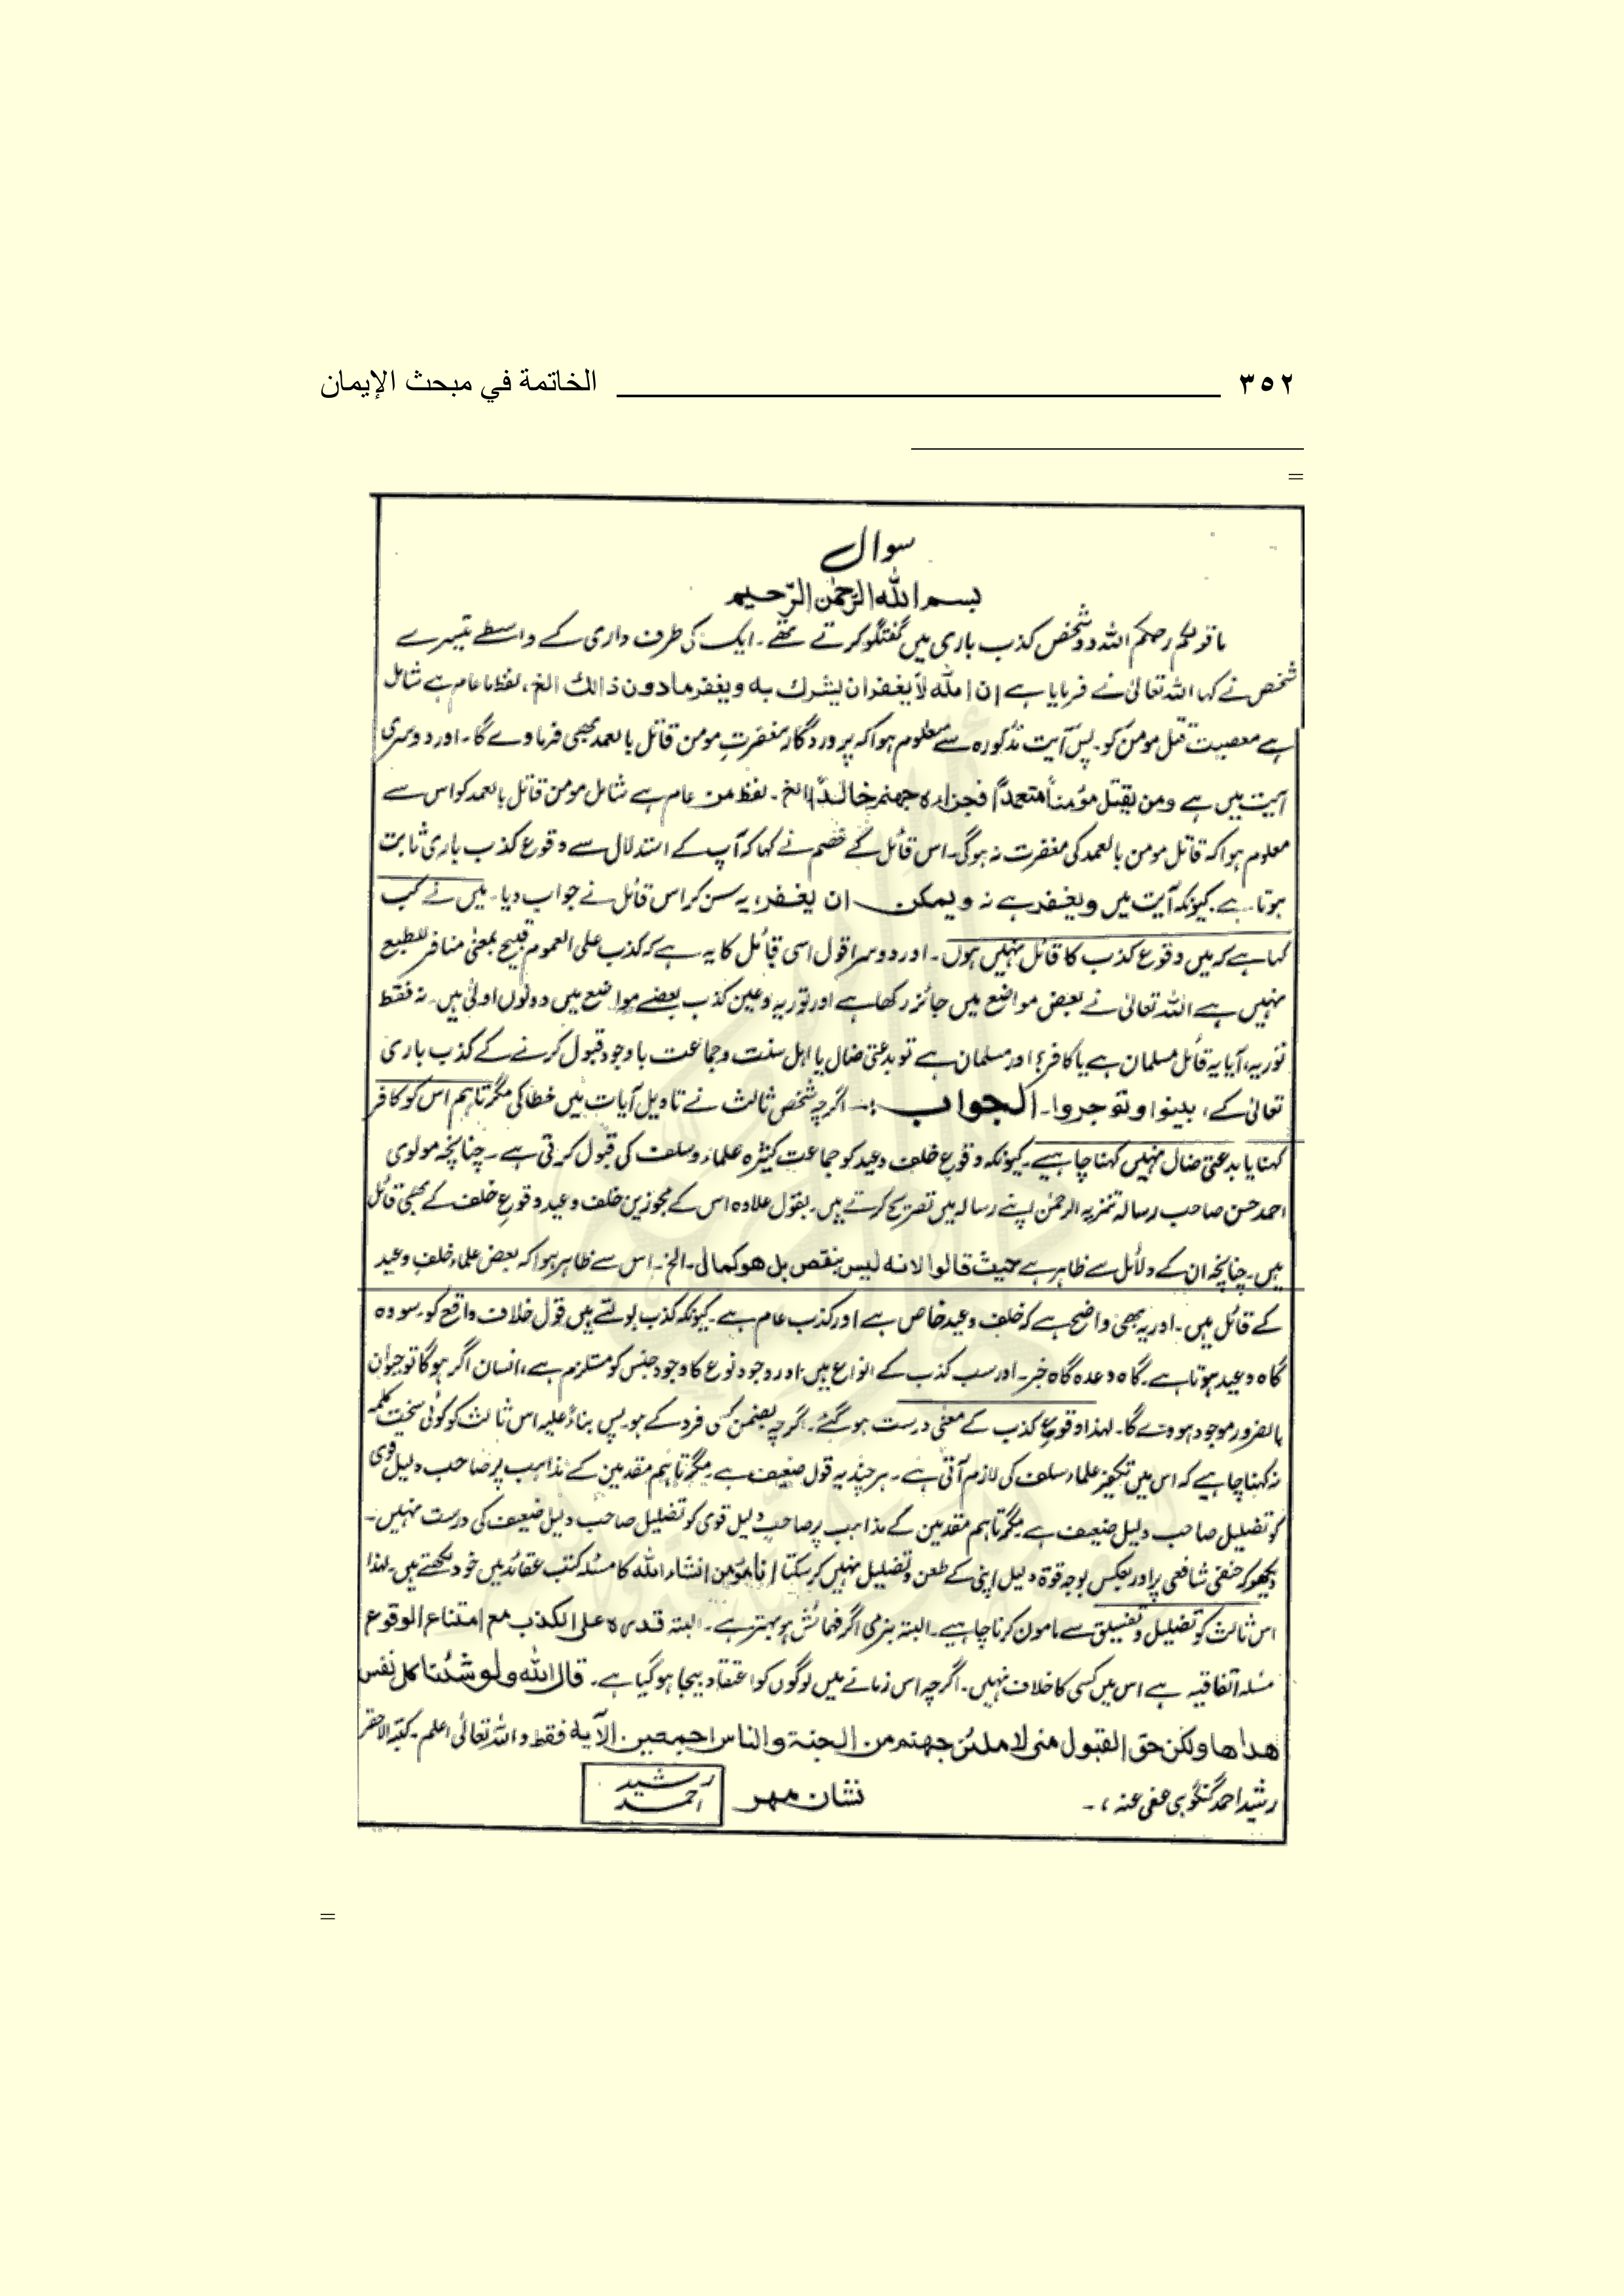 الخاتمة في مبحث الإيمان ٣٥٢
=
سوال
بسم الله الرحمن الرحیم
ما قولکم رحمکم اللہ دو شخص کذب باری میں گفتگو کرتے تھے۔ ایک کی طرف داری کے واسطے تیسرے
شخص نے کہا اللہ تعالیٰ نے فرمایا ہے ان الله لا یغفر ان یشرك به و یغفر ما دون ذالك الخ، لفظ ما عام ہے شامل
ہے معصیت قتل مومن کو۔ پس آیت مذکورہ سے معلوم ہوا کہ پروردگار مغفرت مومن قاتل بالعمد بھی فرماوے گا۔ اور دوسری
آیت میں ہے ومن یقتل مؤمناً متعمداً فجزاءہ جهنم خالداً الخ۔ لفظ من عام ہے شامل مومن قاتل بالعمد کو اس سے
معلوم ہوا کہ قاتل مومن بالعمد کی مغفرت نہ ہوگی۔ اس قائل کے خصم نے کہا کہ آپ کے استدلال سے وقوع کذب باری ثابت
ہوتا ہے۔ کیونکہ آیت میں ویغفر ہے نہ ویمکن ان یغفر، یہ سن کر اس قائل نے جواب دیا۔ میں نے کب
کہا ہے کہ میں وقوع کذب کا قائل نہیں ہوں۔ اور دوسرا قول اسی قائل کا یہ ہے کہ کذب علی العموم قبیح بمعنی منافر للطبع
نہیں ہے اللہ تعالیٰ نے بعض مواضع میں جائز رکھا ہے اور توریہ و عین کذب بعضے مواضع میں دونوں اولیٰ ہیں۔ نہ فقط
توریہ، آیا یہ قائل مسلمان ہے یا کافر؟ اور مسلمان ہے تو بدعتی ضال یا اہل سنت و جماعت باوجود قبول کرنے کے کذب باری
تعالیٰ کے، بینوا و توجروا۔ الجواب :۔ اگرچہ شخص ثالث نے تاویل آیات میں خطا کی مگر تاہم اس کو کافر
کہنا یا بدعتی ضال نہیں کہنا چاہیے۔ کیونکہ وقوع خلف وعید کو جماعت کثیرہ علماء سلف کی قبول کرتی ہے۔ چنانچہ مولوی
احمد حسن صاحب رسالہ تنزیہ الرحمٰن اپنے رسالہ میں تصریح کرتے ہیں۔ بقول علاوہ اس کے مجوزین خلف وعید وقوع خلف کے بھی قائل
ہیں۔ چنانچہ ان کے دلائل سے ظاہر ہے حیث قالوا لانه لیس بنقص بل هو کمال۔ الخ۔ اس سے ظاہر ہوا کہ بعض علماء خلف وعید
کے قائل ہیں۔ اور یہ بھی واضح ہے کہ خلف وعید خاص ہے اور کذب عام ہے۔ کیونکہ کذب بولتے ہیں قول خلاف واقع کو۔ سو وہ
گاہ وعید ہوتا ہے۔ گاہ وعدہ گاہ خبر۔ اور سب کذب کے انواع ہیں، اور وجود نوع کا وجود جنس کو مستلزم ہے، انسان اگر ہوگا تو حیوان
بالضرور موجود ہووے گا۔ لہٰذا وقوع کذب کے معنی درست ہو گئے۔ اگرچہ بضمن کسی فرد کے ہو۔ پس بناءً علیہ اس ثالث کو کوئی سخت کلمہ
نہ کہنا چاہیے کہ اس میں تکفیر علماء سلف کی لازم آتی ہے۔ ہر چند یہ قول ضعیف ہے۔ مگر تاہم متقدمین کے مذاہب پر صاحب دلیل قوی
کو تضلیل صاحب دلیل ضعیف ہے مگر تاہم متقدمین کے مذاہب پر صاحب دلیل قوی کو تضلیل صاحب دلیل ضعیف کی درست نہیں۔
دیکھو کہ حنفی شافعی پر اور بعکس بوجہ قوۃ دلیل اپنی کے طعن و تضلیل نہیں کر سکتا انا مؤمن انشاء اللہ کا مسئلہ کتب عقائد میں خود لکھتے ہیں۔ لہٰذا
اس ثالث کو تضلیل و تفسیق سے مامون کرنا چاہیے۔ البتہ بنرمی اگر فہمائش ہو بہتر ہے۔ البتہ قدرہ علی الکذب مع امتناع الوقوع
مسئلہ اتفاقیہ ہے اس میں کسی کا خلاف نہیں۔ اگرچہ اس زمانے میں لوگوں کو اعتقاد بیجا ہو گیا ہے۔ قال الله ولو شئنا کل نفس
هداها ولکن حق القول منی لاملئن جهنم من الجنة والناس اجمعین الآیه فقط واللہ تعالیٰ اعلم۔ کتبہ الاحقر
رشید احمد گنگوہی عفی عنہ،۔ نشان مہر رشید احمد
=